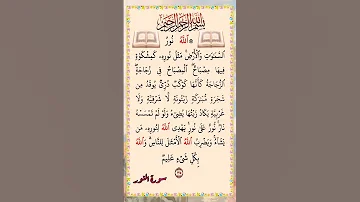 بِسْمِ اللَّهِ الرَّحْمَٰنِ الرَّحِيمِ
۞ اللَّهُ نُورُ
السَّمَٰوَٰتِ وَالْأَرْضِ مَثَلُ نُورِهِۦ كَمِشْكَوٰةٍ
فِيهَا مِصْبَاحٌ الْمِصْبَاحُ فِي زُجَاجَةٍ
الزُّجَاجَةُ كَأَنَّهَا كَوْكَبٌ دُرِّيٌّ يُوقَدُ مِن
شَجَرَةٍ مُّبَٰرَكَةٍ زَيْتُونَةٍ لَّا شَرْقِيَّةٍ وَلَا
غَرْبِيَّةٍ يَكَادُ زَيْتُهَا يُضِيٓءُ وَلَوْ لَمْ تَمْسَسْهُ
نَارٌ نُّورٌ عَلَىٰ نُورٍ يَهْدِي اللَّهُ لِنُورِهِۦ مَن
يَشَآءُ وَيَضْرِبُ اللَّهُ الْأَمْثَٰلَ لِلنَّاسِ وَاللَّهُ
بِكُلِّ شَيْءٍ عَلِيمٌ
سورة النور